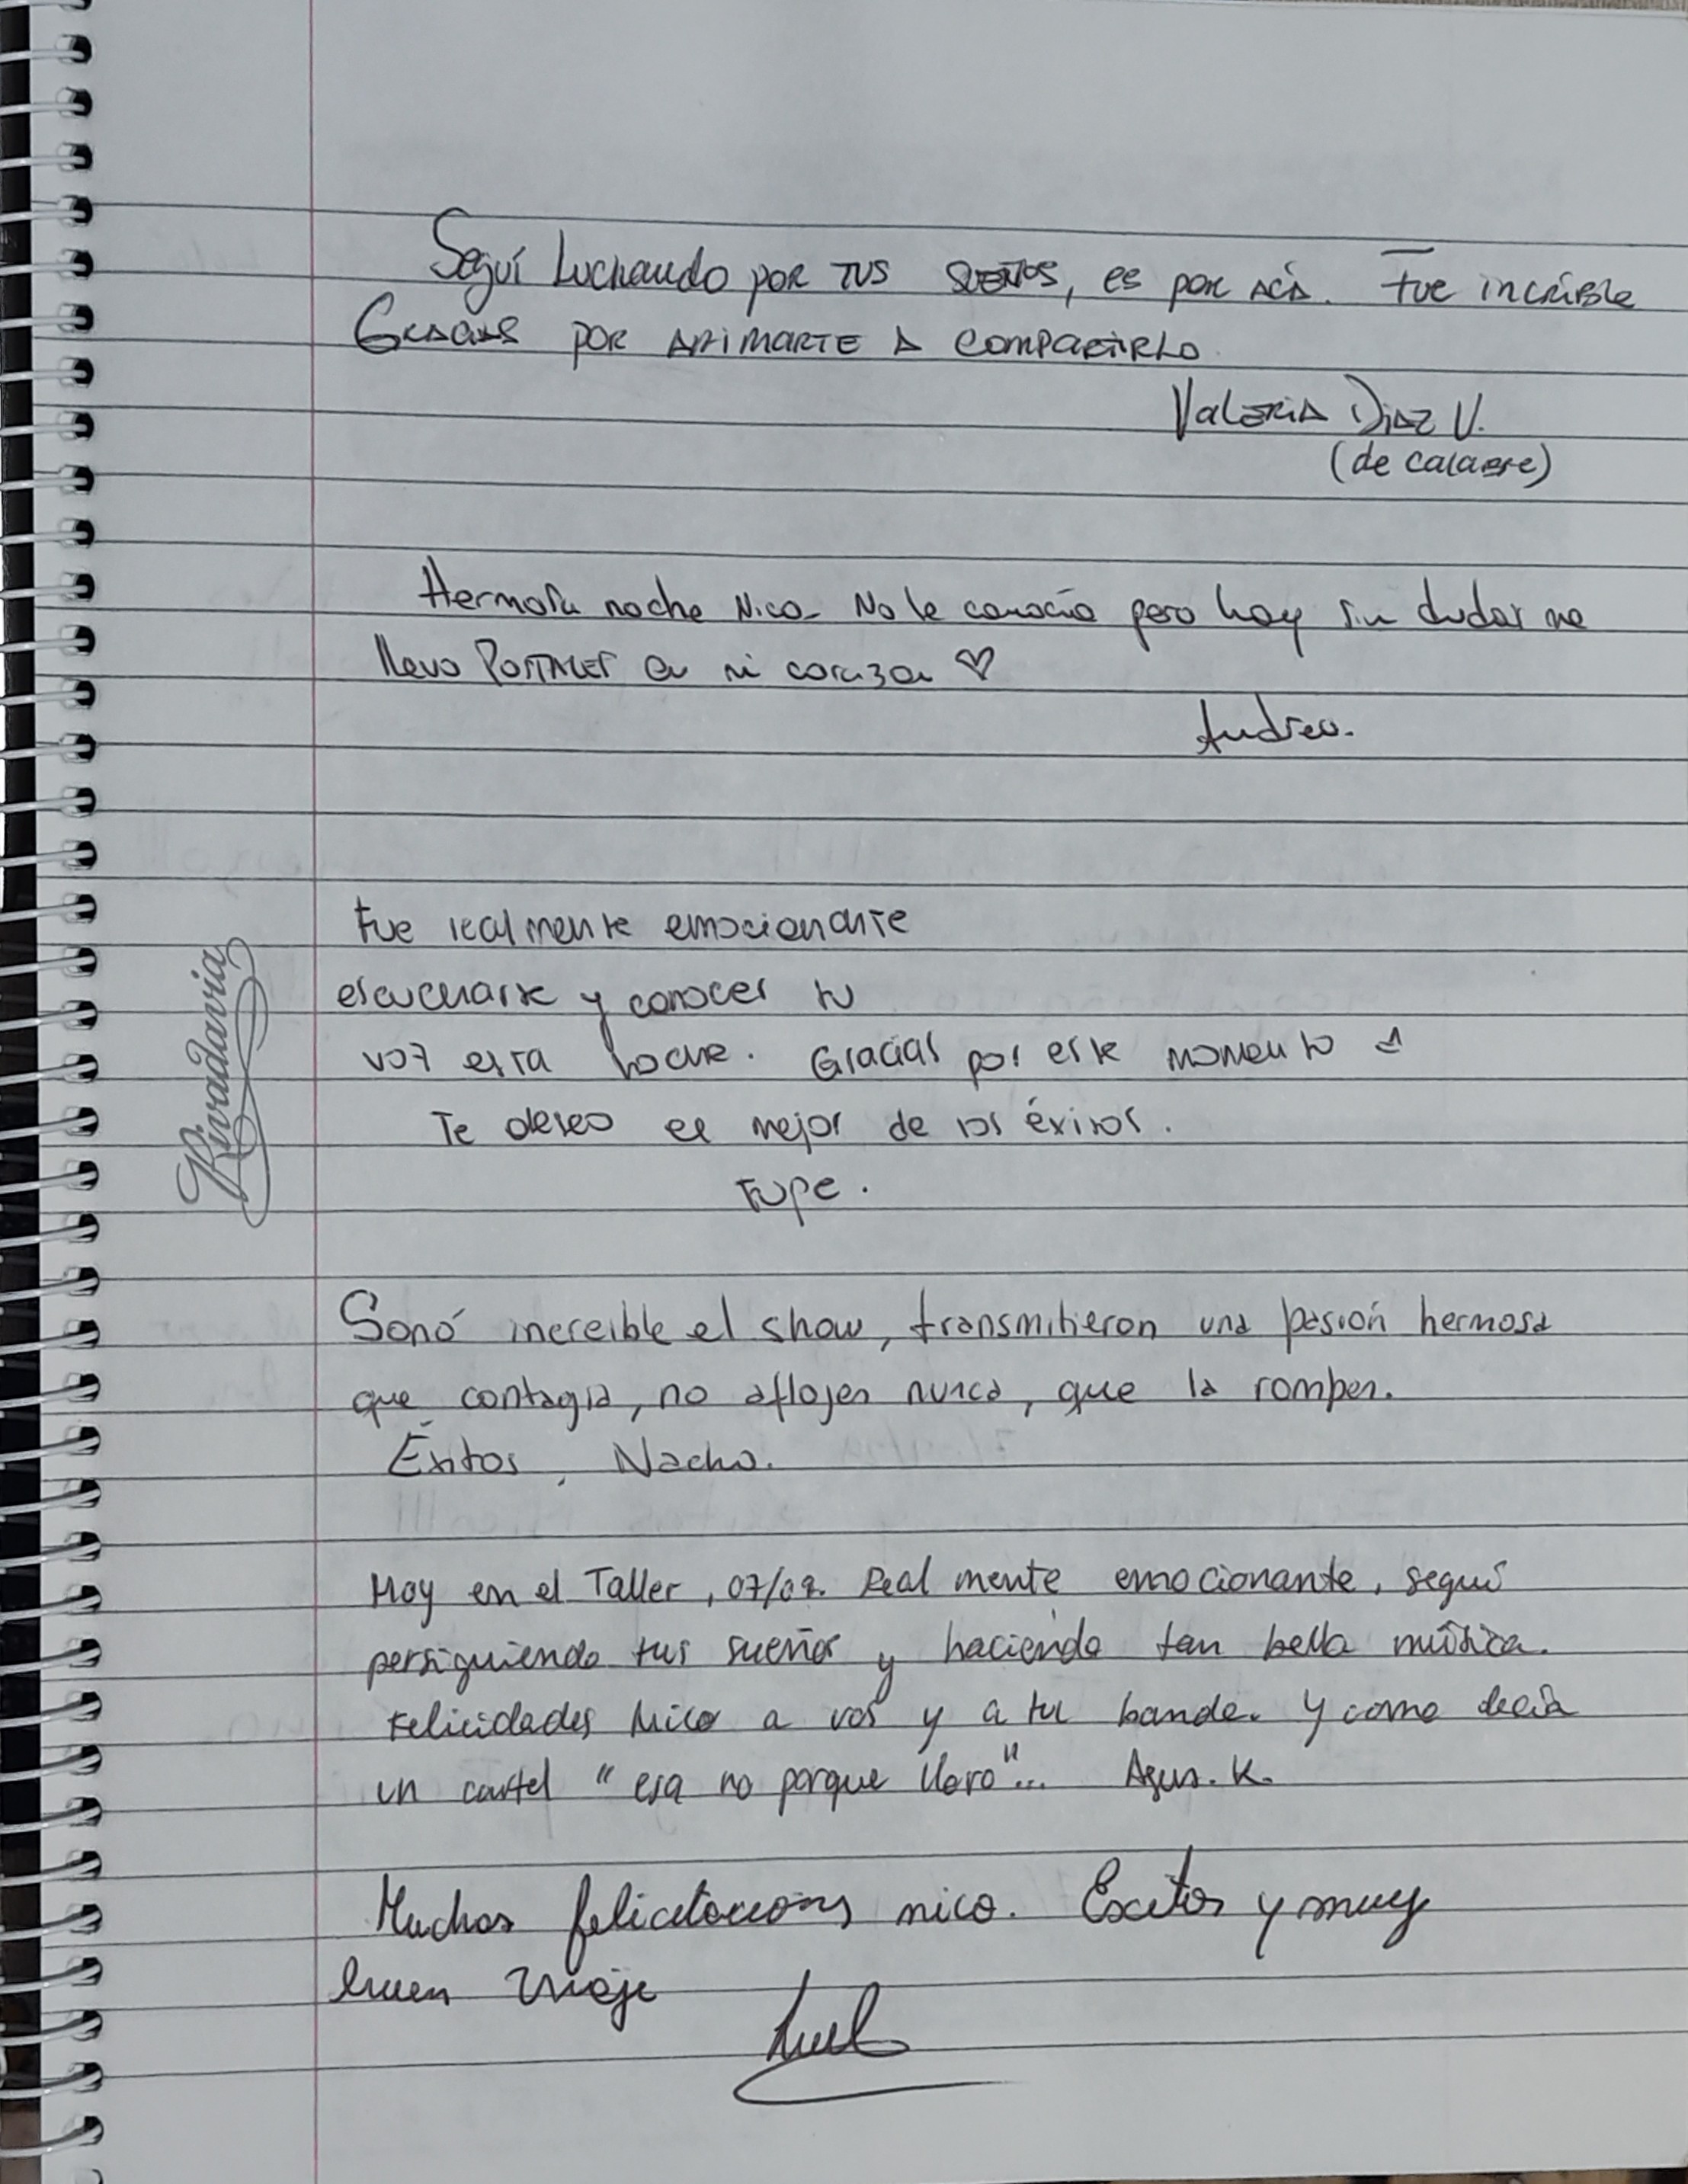 Seguí luchando por tus sueños, es por acá. Fue increíble
Gracias por animarte a compartirlo.
Valeria Diaz V.
(de calabre)
Hermosa noche Nico. No te conocía pero hoy sin dudar me
llevo POSTALES en mi corazon ♡
Andrea.
Fue realmente emocionante
escucharte y conocer tu
voz esta noche. Gracias por este momento
Te deseo el mejor de los éxitos.
Rivadavia
Sonó increible el show, transmitieron una pasión hermosa
que contagia, no aflojen nunca, que la rompen.
Éxitos, Nacho.
Hoy en el Taller, 07/09. Real mente emocionante, seguí
persiguiendo tus sueños y haciendo tan bella música.
Felicidades Nico a vos y a tu banda. Y como decía
un cartel "esa no porque lloro"... Agus. K.
Muchas felicitaciones nico. Exitos y muy
buen viaje